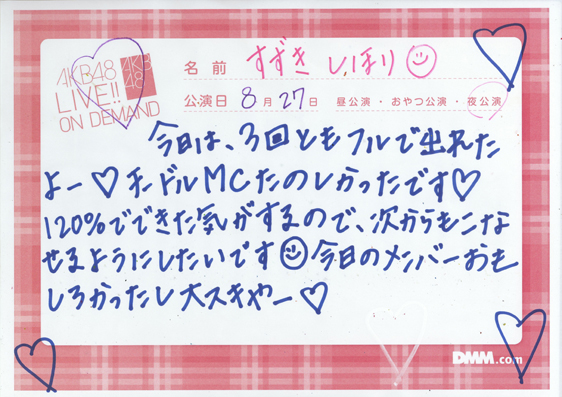 AKB48
LIVE!!
ON DEMAND
AKB
48
名前 すずき しほり
公演日 8月27日 昼公演・おやつ公演・夜公演
今日は、3回ともフルで出れた
よー♡チードルMCたのしかったです♡
120%でできた気がするので、次からもこな
せるようにしたいです☺今日のメンバーおも
しろかったし大スキやー♡
DMM.com